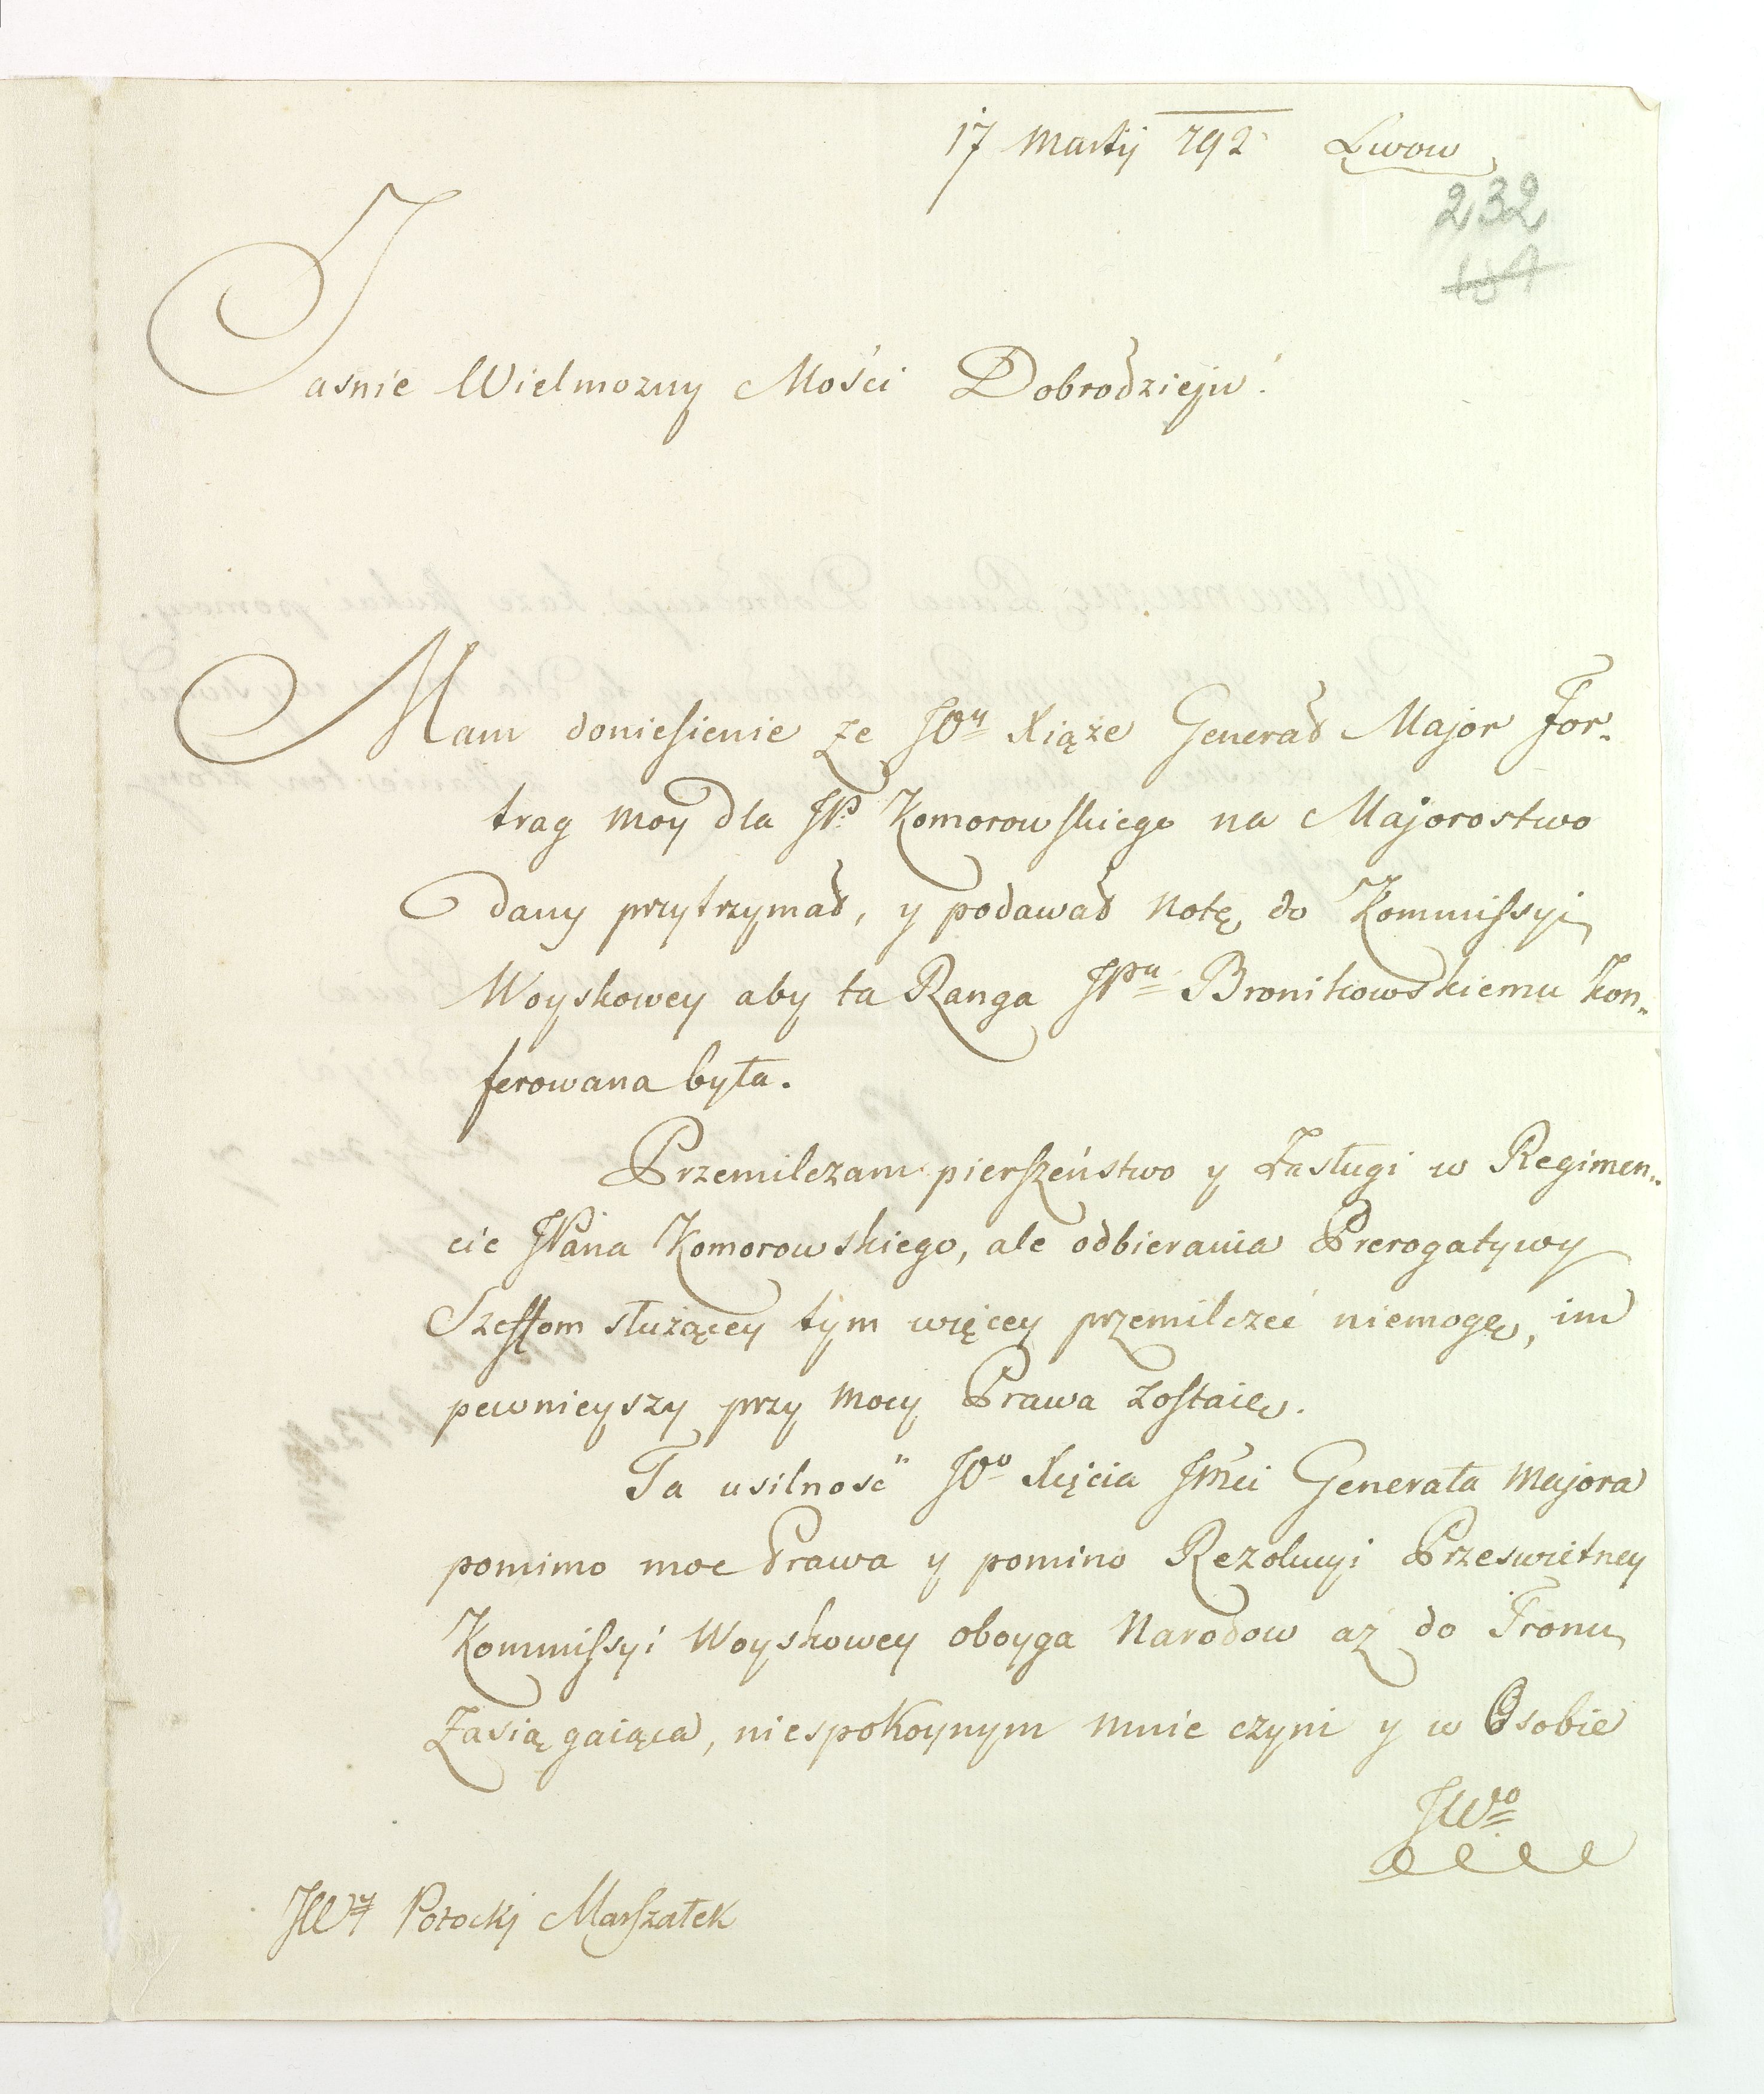 17 Martij 792 Lwow
232
Jasnie Wielmozny Mości Dobrodzieju!
Mam doniesienie ze JOy Xiąże Generał Major For-
trag moy dla JP. Komorowskiego na Majorostwo
dany przytrzymał, y podawał Notę do Kommissyi
Woyskowey aby ta Ranga JPu Bronikowskiemu kon-
ferowana była.
Przemilczam pierszeństwo y Zasługi w Regimen-
cie JPana Komorowskiego, ale odbierania Prerogatywy
Szeffom służącey tym więcey przemilczeć niemogę, im
pewnieyszy przy mocy Prawa zostaię.
Ta usilność JOo Xięcia Jmci Generała Majora
pomimo moc Prawa y pomino Rezolucyi Przeswietney
Kommissyi Woyskowey oboyga Narodow aż do Tronu
Zasiągaiąca, niespokoynym mnie czyni y w Osobie
JWo
JWy Potocki Marszałek